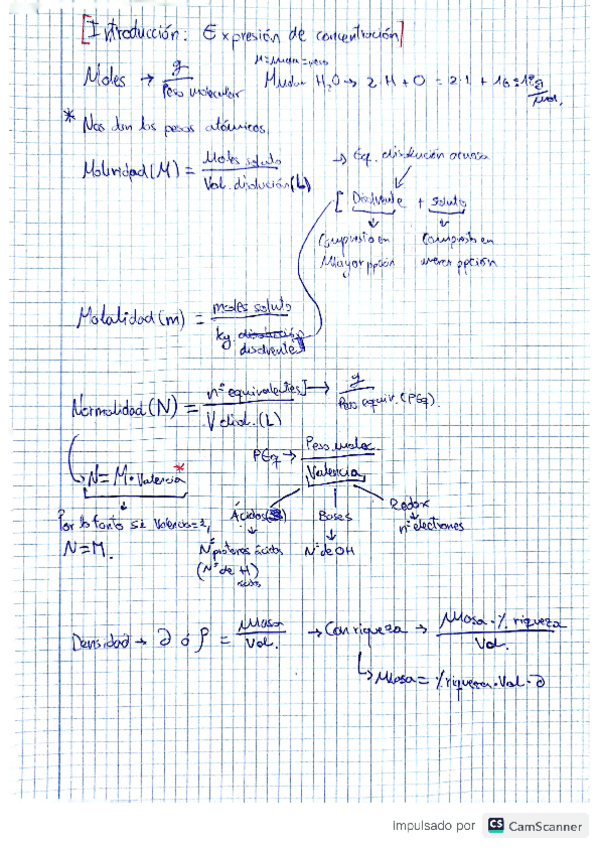 [Introducción: Expresión de concentración]
Moles → g / Peso molecular
M molar H₂O → 2·H + O = 2·1 + 16 = 18 g/mol.
* Nos dan los pesos atómicos
Molaridad (M) = Moles soluto / Vol. disolución (L)
→ Ej. disolución acuosa
[Disolvente + soluto
Compuesto en Mayor ppción
Compuesto en menor ppción
Molalidad (m) = moles soluto / kg. disolvente
Normalidad (N) = nº equivalentes / V disol. (L)
→ g / Peso equiv (PEq).
PEq → Peso molec. / Valencia
N = M · Valencia *
Por lo tanto si Valencia = 1,
N = M.
Ácidos
Nº protones ácidos
(Nº de H)
Bases
Nº de OH
Redox
nº electrones
Densidad → ∂ ó ρ = Masa / Vol.
→ Con riqueza → Masa · % riqueza / Vol.
↳ Masa = % riqueza · Vol · ∂
Impulsado por CS CamScanner